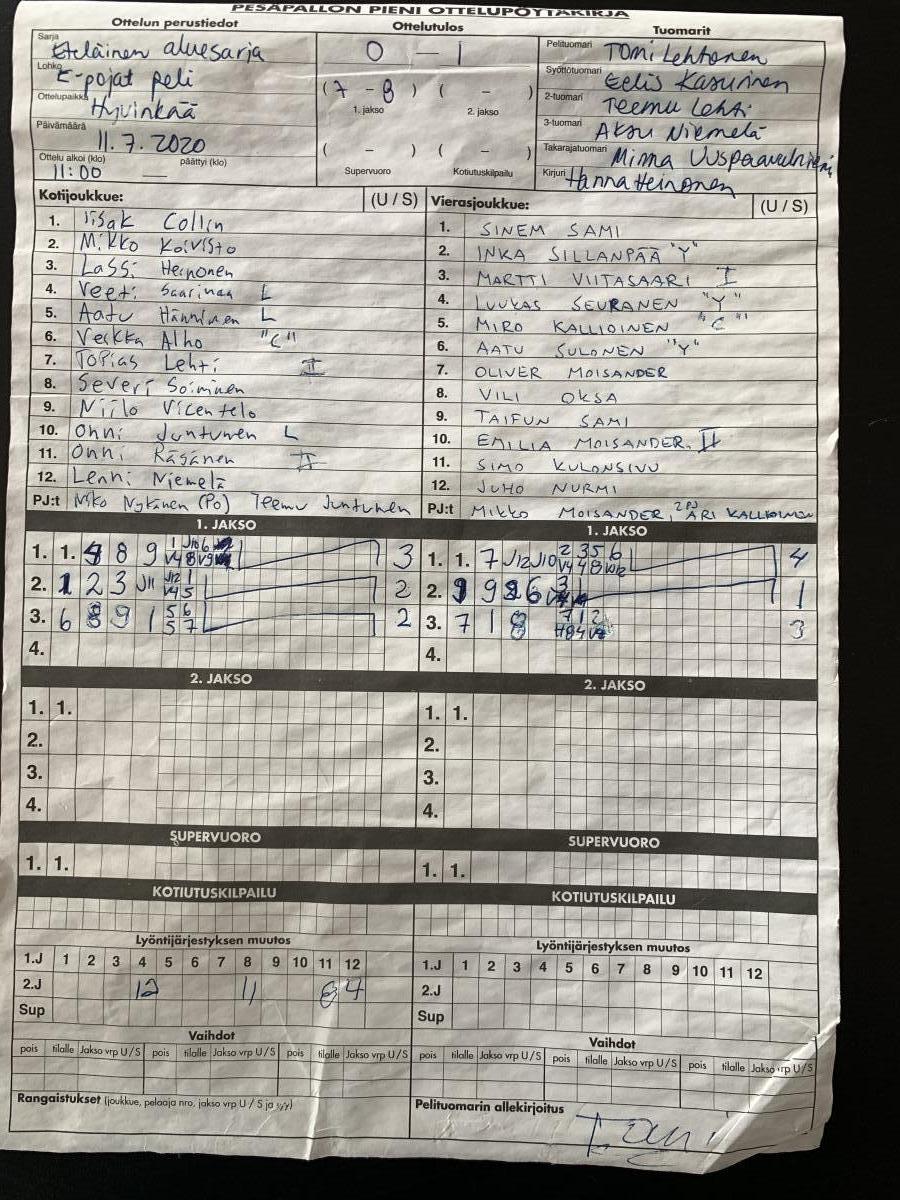 PESÄPALLON PIENI OTTELUPÖYTÄKIRJA
Ottelun perustiedot
Sarja Eteläinen aluesarja
Lohko E-pojat peli
Ottelupaikka Hyvinkää
Päivämäärä 11.7.2020
Ottelu alkoi (klo) päättyi (klo)
11:00 —
Ottelutulos
0 — 1
(7 - 8) ( - )
1. jakso 2. jakso
( - ) ( - )
Supervuoro Kotiutuskilpailu
Tuomarit
Pelituomari Tomi Lehtonen
Syöttötuomari Eelis Kasurinen
2-tuomari Teemu Lehti
3-tuomari Aksu Niemelä
Takarajatuomari Minna
Kirjuri Hanna Heinonen
Kotijoukkue: (U / S)
1. Iisak Collin
2. Mikko Koivisto
3. Lassi Heinonen
4. Veeti Saarinen L
5. Aatu Hänninen L
6. Veikka Alho "C"
7. Topias Lehti II
8. Severi Soininen
9. Niilo Vicentelo
10. Onni Juntunen L
11. Onni Räsänen II
12. Lenni Niemelä
PJ:t Niko Nykänen (PO) Teemu Juntunen
Vierasjoukkue: (U / S)
1. SINEM SAMI
2. INKA SILLANPÄÄ "Y"
3. MARTTI VIITASAARI I
4. LUUKAS SEURANEN "Y"
5. MIRO KALLIOINEN "C"
6. AATU SULONEN "Y"
7. OLIVER MOISANDER
8. VILI OKSA
9. TAIFUN SAMI
10. EMILIA MOISANDER II
11. SIMO KULONSIVU
12. JUHO NURMI
PJ:t MIKKO MOISANDER, 2PJ ARI KALLIOINEN
1. JAKSO
1. 1. 8 9 3
2. 1 2 3 J11 J12 1 V4 5 2
3. 6 8 9 1 5 6 5 7 2
4.
1. JAKSO
1. 1. 7 J12 J10 2 3 5 6 V4 4 8 4
2. 9 6 1
3. 7 1 8 7 1 2 3
4.
2. JAKSO
1. 1.
2.
3.
4.
2. JAKSO
1. 1.
2.
3.
4.
SUPERVUORO
1. 1.
SUPERVUORO
1. 1.
KOTIUTUSKILPAILU
KOTIUTUSKILPAILU
Lyöntijärjestyksen muutos
1.J 1 2 3 4 5 6 7 8 9 10 11 12
2.J 12 11 8 4
Sup
Lyöntijärjestyksen muutos
1.J 1 2 3 4 5 6 7 8 9 10 11 12
2.J
Sup
Vaihdot
pois tilalle Jakso vrp U / S pois tilalle Jakso vrp U / S pois tilalle Jakso vrp U / S
Vaihdot
pois tilalle Jakso vrp U / S pois tilalle Jakso vrp U / S pois tilalle Jakso vrp U / S
Rangaistukset (joukkue, pelaaja nro, jakso vrp U / S ja syy)
Pelituomarin allekirjoitus